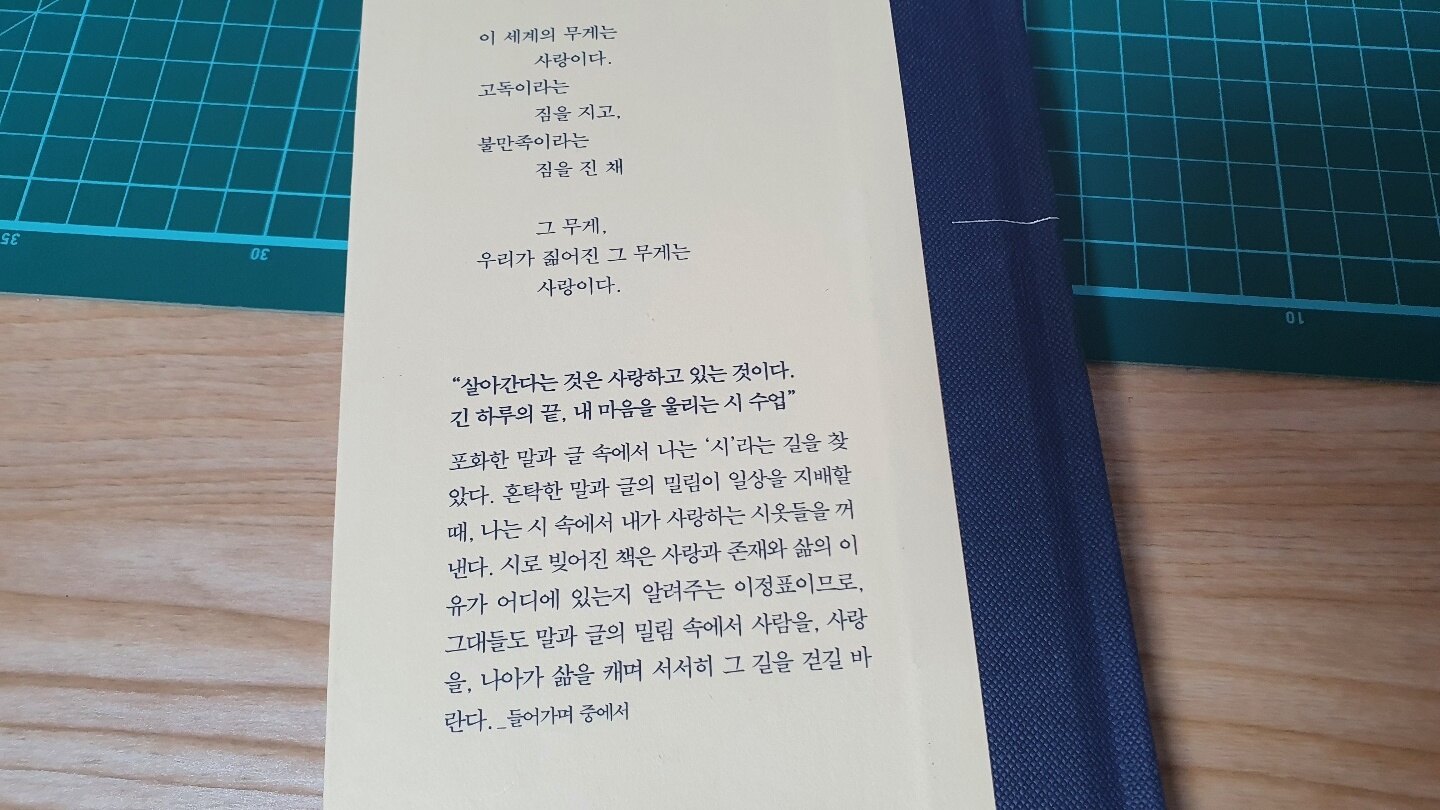 이 세계의 무게는
사랑이다.
고독이라는
짐을 지고,
불만족이라는
짐을 진 채
그 무게,
우리가 짊어진 그 무게는
사랑이다.
“살아간다는 것은 사랑하고 있는 것이다.
긴 하루의 끝, 내 마음을 울리는 시 수업”
포화한 말과 글 속에서 나는 ‘시’라는 길을 찾
았다. 혼탁한 말과 글의 밀림이 일상을 지배할
때, 나는 시 속에서 내가 사랑하는 시옷들을 꺼
낸다. 시로 빚어진 책은 사랑과 존재와 삶의 이
유가 어디에 있는지 알려주는 이정표이므로,
그대들도 말과 글의 밀림 속에서 사람을, 사랑
을, 나아가 삶을 캐며 서서히 그 길을 걷길 바
란다. _들어가며 중에서
35
30
10